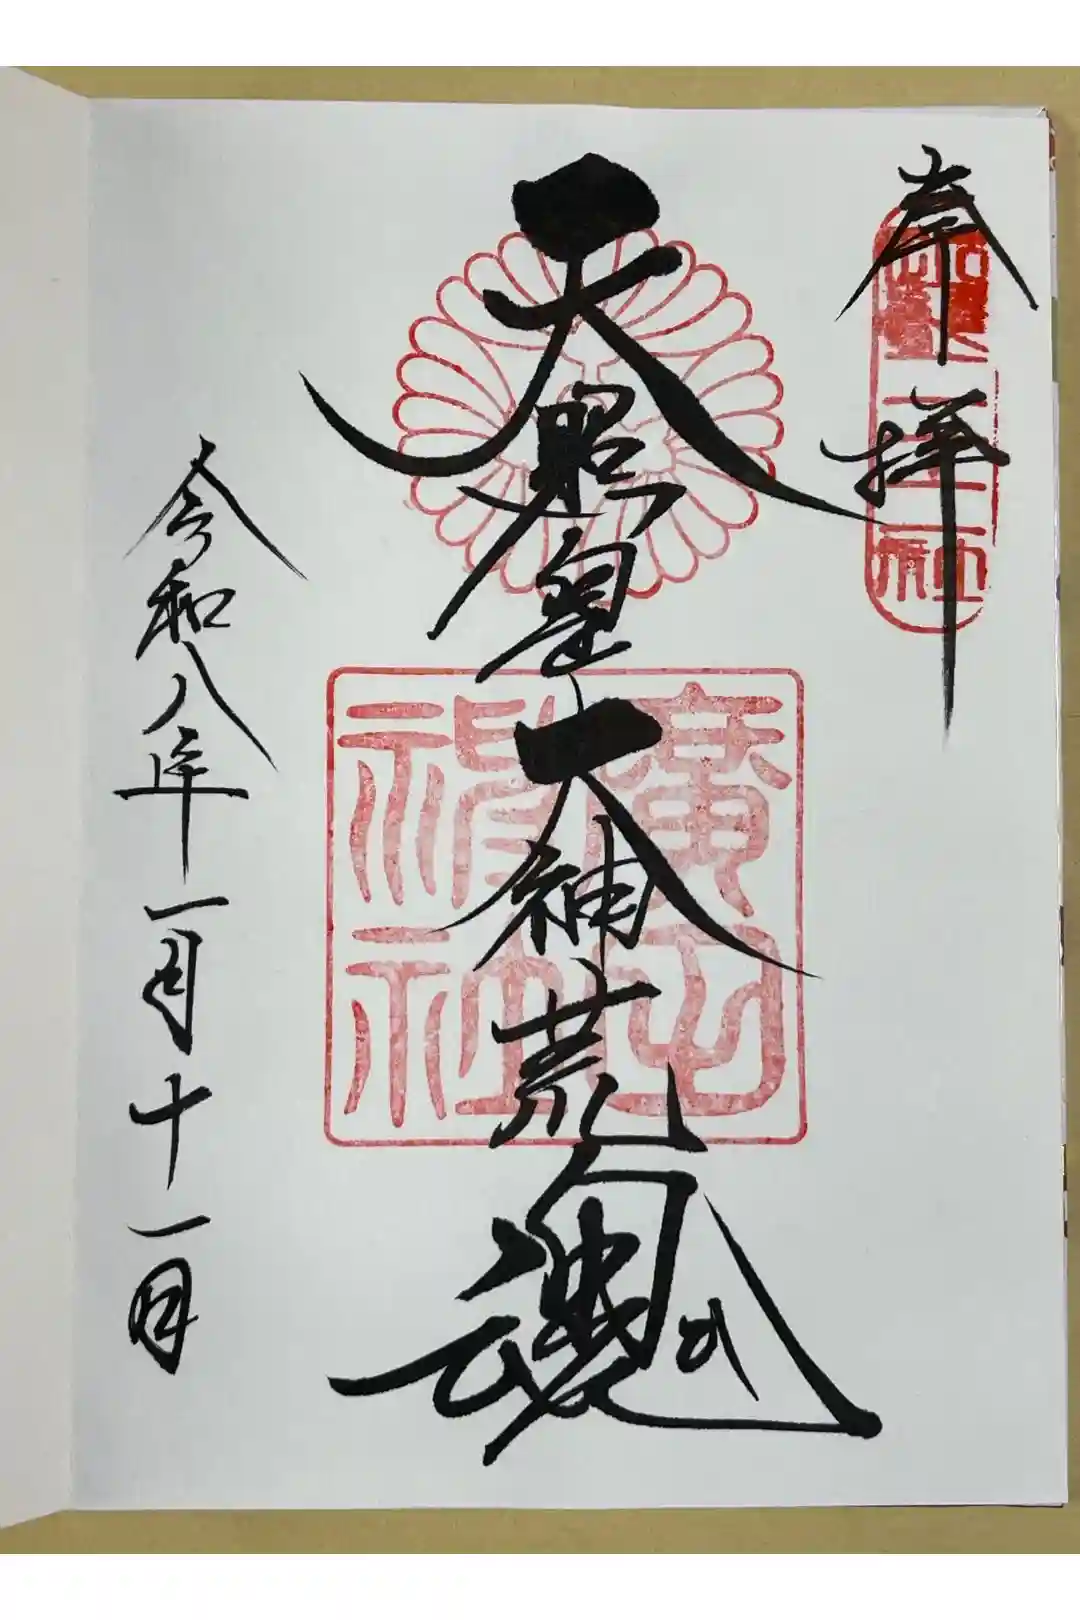 奉拝
天照皇大神荒魂
廣田神社
令和八年一月十一日